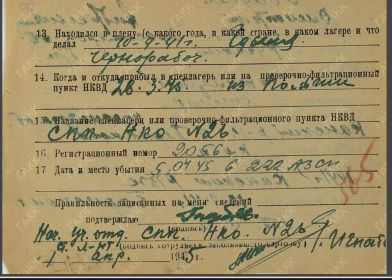 13. Находился в плену (с какого года, в какой стране, в каком лагере и что
делал 10-9-41г.
Чернорабоч.
14. Когда и откуда прибыл в спецлагерь или на проверочно-фильтрационный
пункт НКВД 28.3.45. из Польши
15. Название спецлагеря или проверочно-фильтрационного пункта НКВД
СПП НКО №26.
16 Регистрационный номер 2056
17 Дата и место убытия 5.04.45 в 222 АЗСП
Правильность записанных на меня сведений
подтверждаю
(подпись)
Нач. уч. отд. СПП. НКО. №26
(подпись сотрудника, заполнявшего карточку)
1 апр. 1945г.